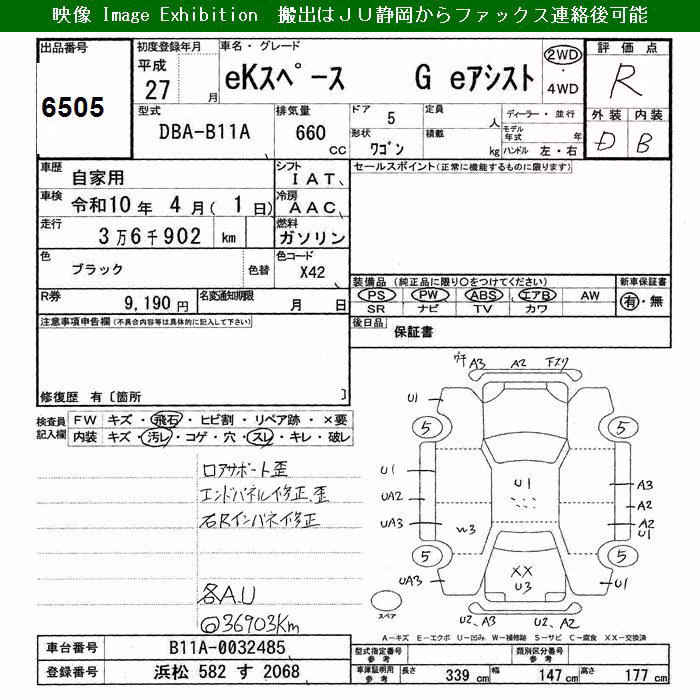 映像 Image Exhibition　搬出はＪＵ静岡からファックス連絡後可能
出品番号
6505
初度登録年月
平成
27 月
車名・グレード
eKスペース　G eアシスト
2WD
・
4WD
評価点
R
型式
DBA-B11A
排気量
660 CC
ドア 5
形状 ワゴン
定員 人
積載 kg
ディーラー・並行
モデル年式 年
ハンドル 左・右
外装 内装
D B
車歴
自家用
シフト
IAT、
セールスポイント(正常に機能するものに限ります)
車検
令和10年 4月( 1日)
冷房
AAC、
走行
3万6千902 km
燃料
ガソリン
色
ブラック
色替
色コード
X42
装備品 (純正品に限り○をつけてください)
新車保証書
PS PW ABS エアB AW
有・無
SR ナビ TV カワ
R券
9,190円
名変通知期限
月 日
後日品
保証書
注意事項申告欄(不具合内容等は具体的に記入して下さい)
修復歴 有〔箇所 〕
検査員
記入欄
FW キズ・飛石・ヒビ割・リペア跡・×要
内装 キズ・汚レ・コゲ・穴・スレ・キレ・破レ
ロアサポート歪
エンドパネル修正、歪
右Rインパネ修正
各A.U
◎36903Km
A3 A2
U1
5 5
U1
U1
A3
UA2
A2
UA3
A2
U1
W3
5 5
UA3
XX
U3
U1
スペア
U2、A3 U2、A2
A－キズ E－エクボ U－凹み W－補修跡 S－サビ C－腐食 XX－交換済
車台番号
B11A-0032485
登録番号
浜松 582 す 2068
型式指定番号
参考
類別区分番号
参考
車庫証明用
参考
長さ 339 cm
幅 147 cm
高さ 177 cm